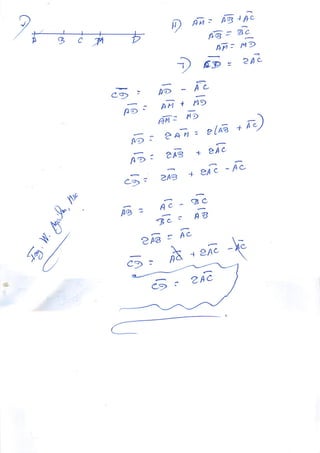 A B C M D
H) AM = AB + AC
AB = BC
AM = MD
T) CD = 2AC
CD = AD - AC
AD = AM + MD
AM = MD
AD = 2AM = 2(AB + AC)
AD = 2AB + 2AC
CD = 2AB + 2AC - AC
AB = AC - BC
BC = AB
2AB = AC
CD = AC + 2AC - AC
CD = 2AC